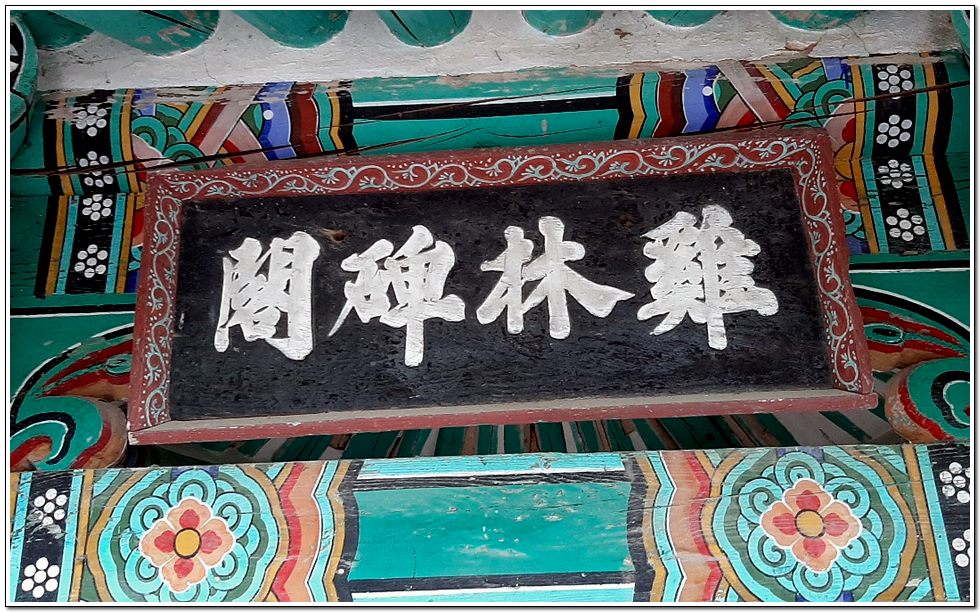 雞林碑閣